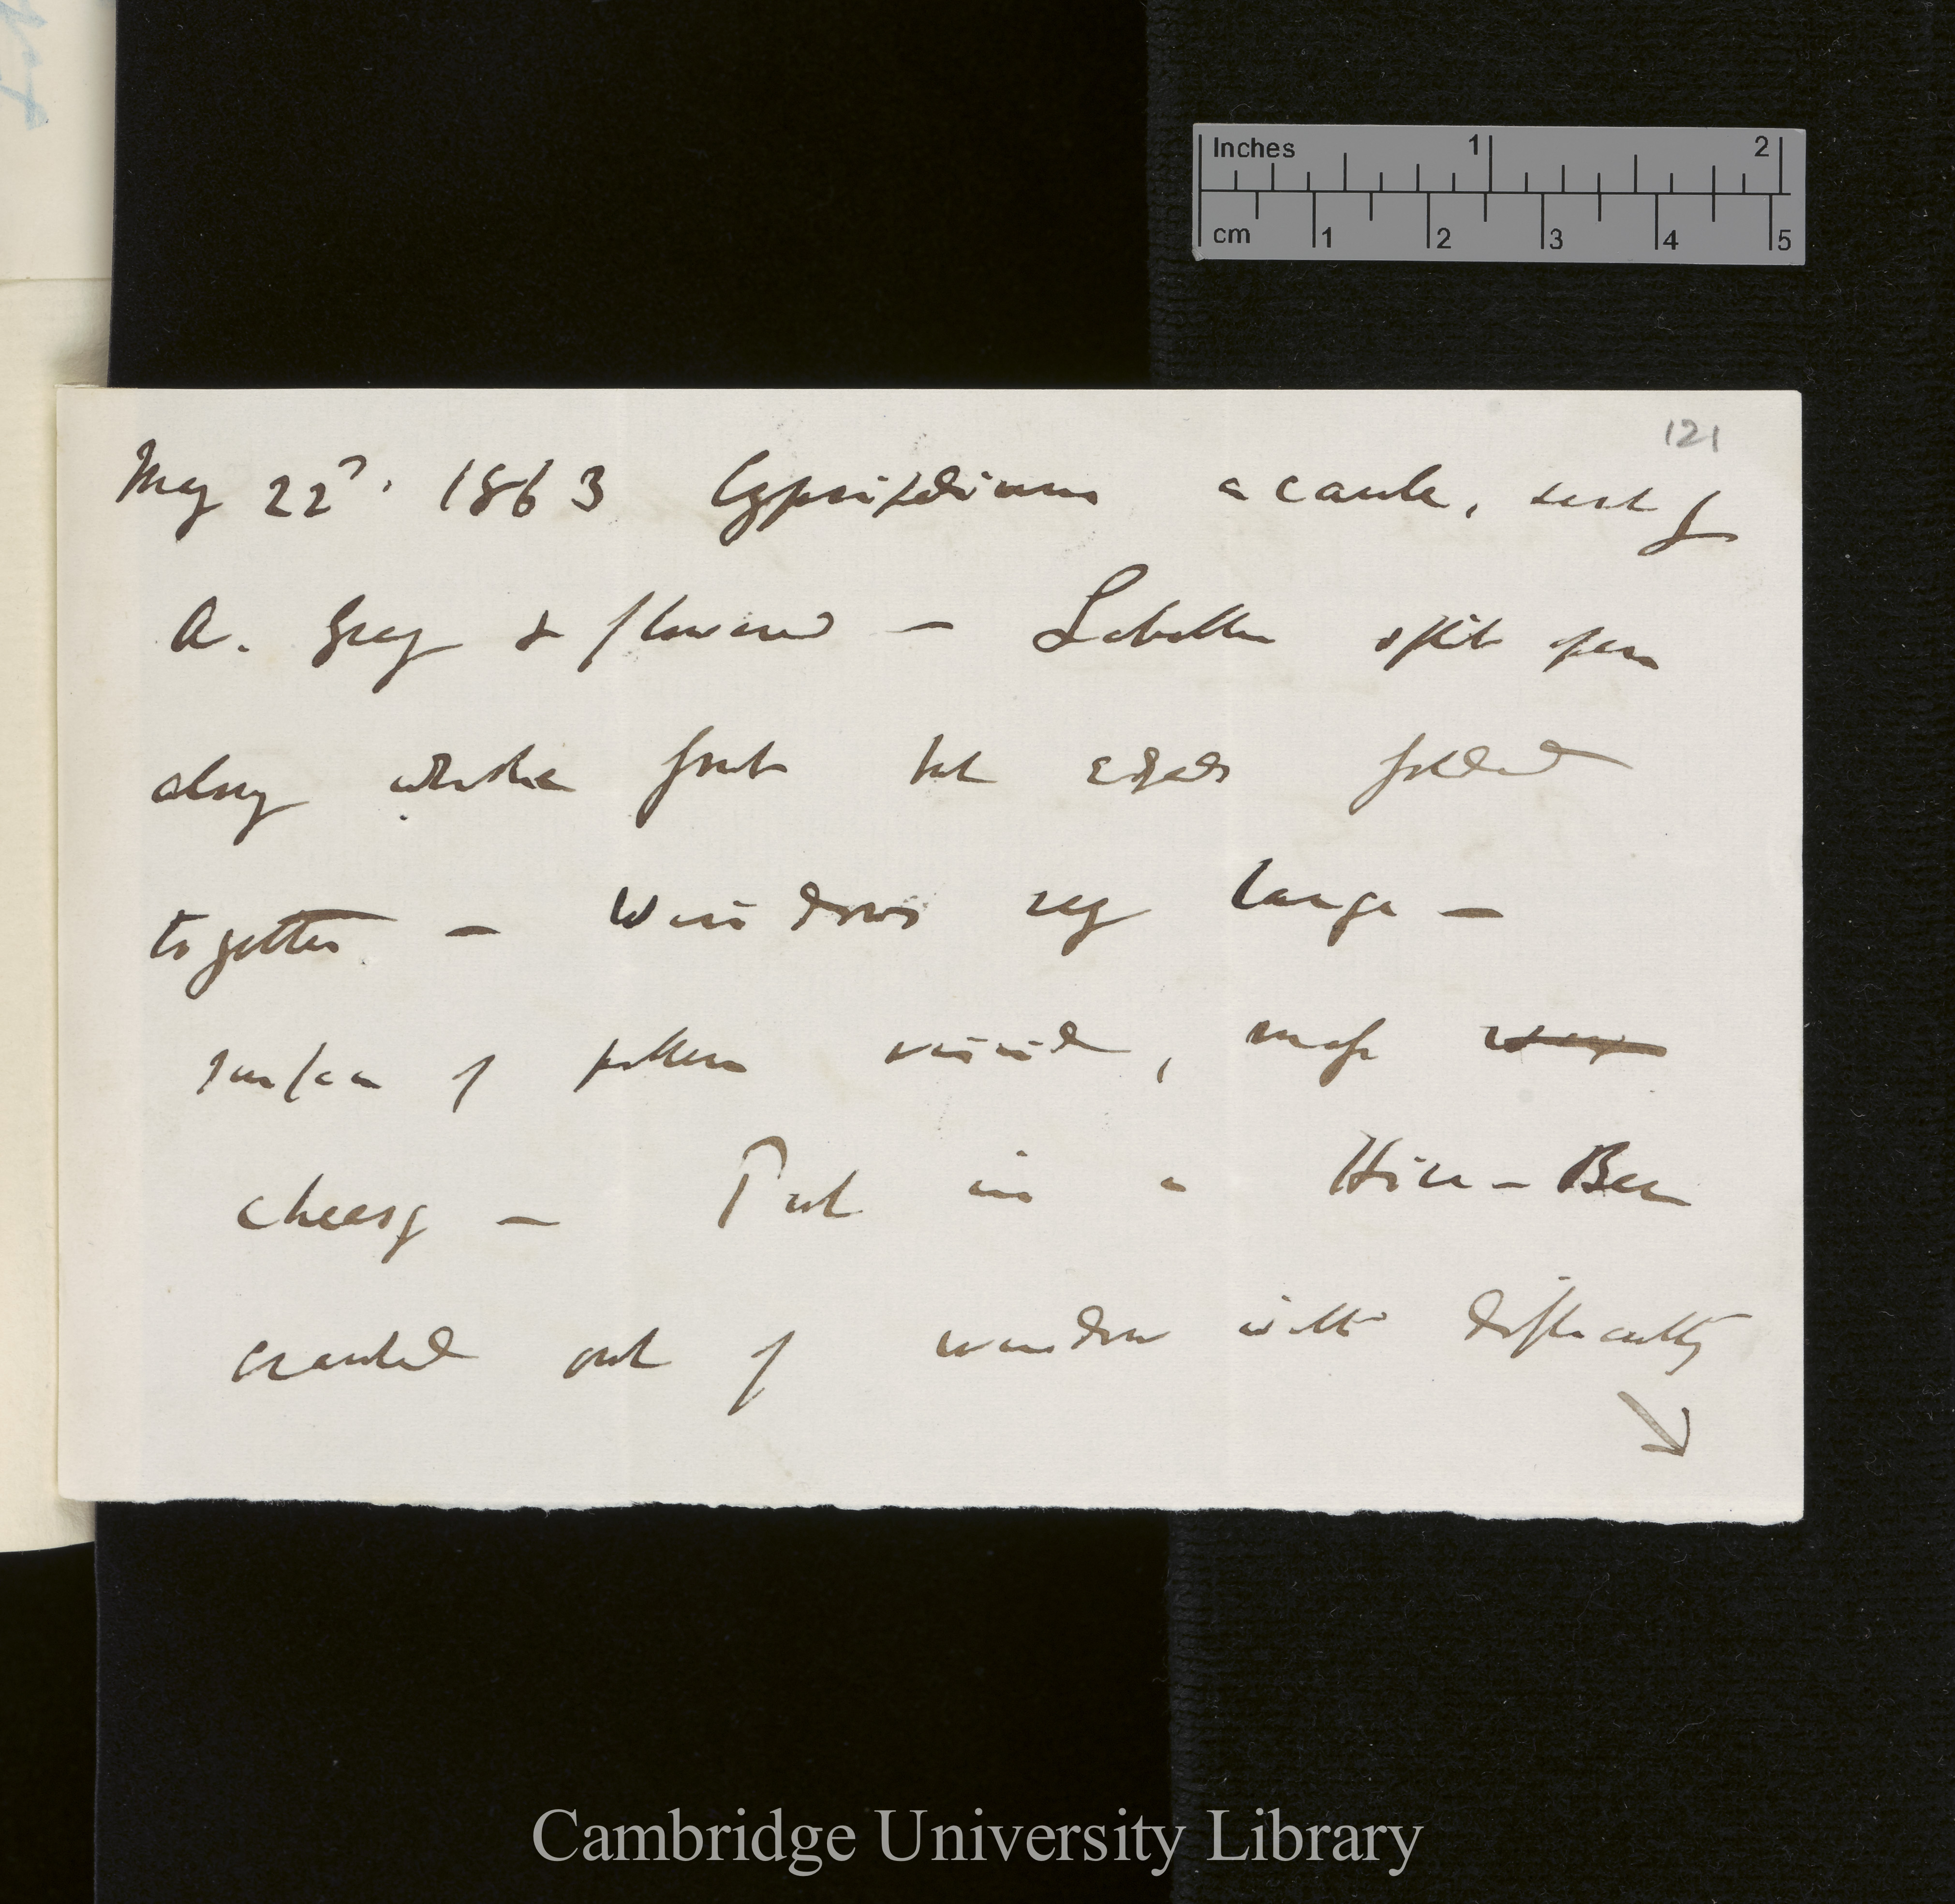 Inches 1 2
cm 1 2 3 4 5
121
May 22d. 1863 Cypripedium acaule, sent by
A. Gray & flowered — Labellum split open
along whole front but edges folded
together — Windows very large —
surface of pollen viscid, mass
cheesy — Put in a Hive-Bee
crawled out of window with difficulty
Cambridge University Library